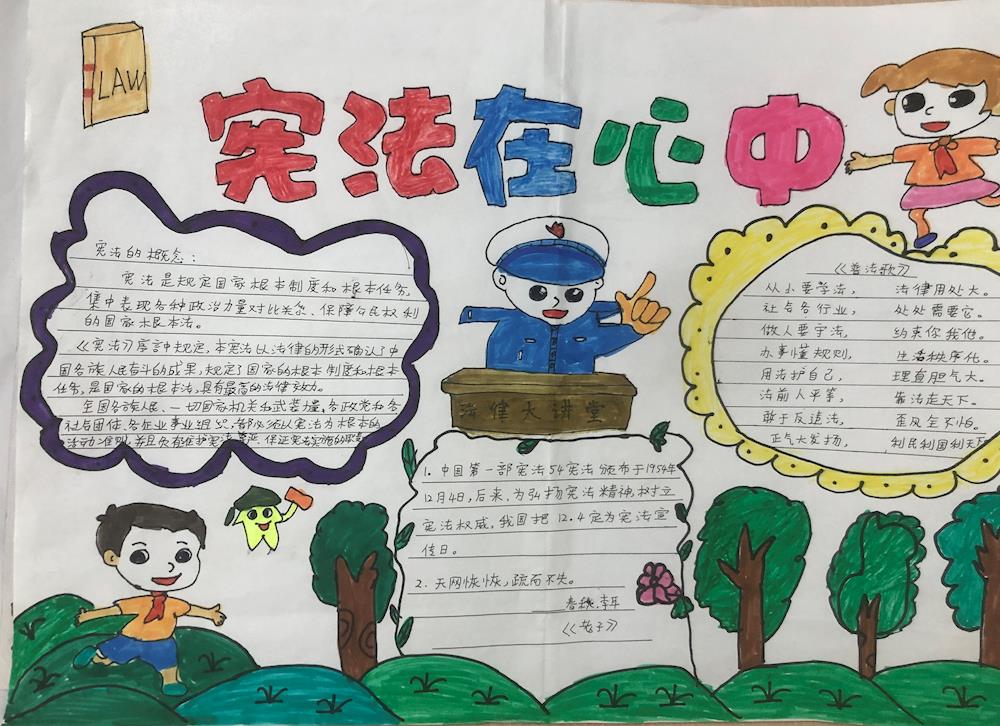 LAW
宪法在心中
宪法的概念：
宪法是规定国家根本制度和根本任务,
集中表现各种政治力量对比关系、保障公民权利
的国家根本法。
《宪法》序言中规定，本宪法以法律的形式确认了中
国各族人民奋斗的成果，规定了国家的根本制度和根本
任务，是国家的根本法，具有最高的法律效力。
全国各族人民、一切国家机关和武装力量、各政党和各
社会团体、各企业事业组织，都必须以宪法为根本的
活动准则，并且负有维护宪法尊严、保证宪法实施的职责
法律大讲堂
1. 中国第一部宪法54宪法颁布于1954年
12月4日，后来，为弘扬宪法精神，树立
宪法权威，我国把 12.4定为宪法宣
传日。
2. 天网恢恢，疏而不失。
春秋.李耳
《老子》
《普法歌》
从小要学法， 法律用处大。
社会各行业， 处处需要它。
做人要守法， 约束你我他。
办事懂规则， 生活秩序化。
用法护自己， 理直胆气大。
法前人平等， 靠法走天下。
敢于反违法， 歪风全不怕。
正气大发扬， 利民利国利天